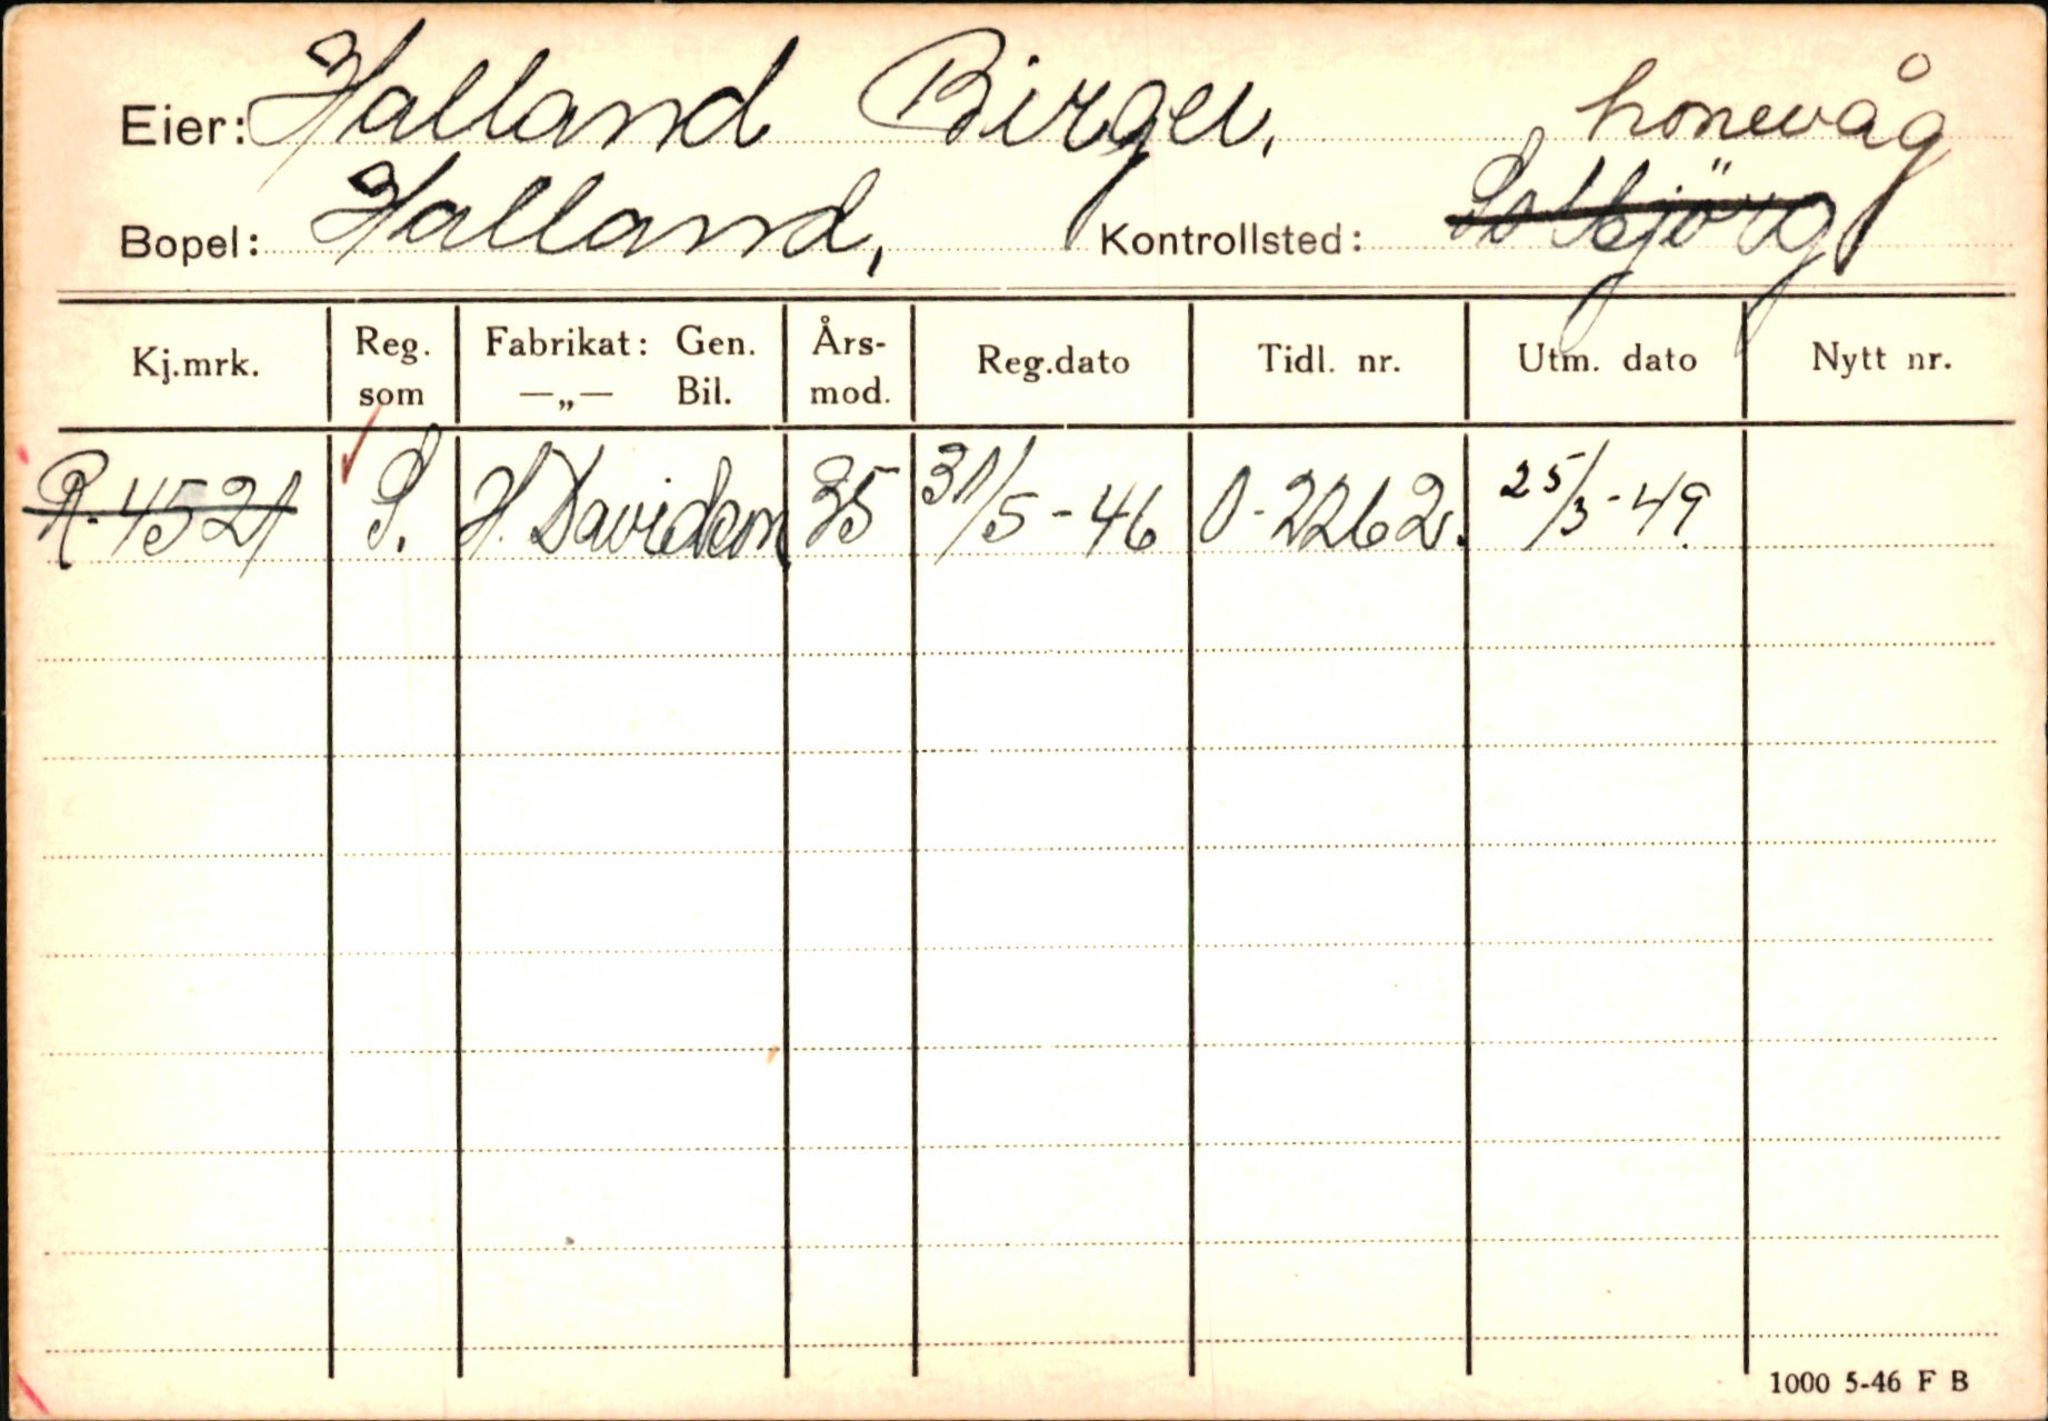 Eier: Halland Birger, honevåg
Bopel: Halland, Kontrollsted: Solbjörg
Kj.mrk. Reg. som Fabrikat: Gen. —„— Bil. Års-mod. Reg.dato Tidl. nr. Utm. dato Nytt nr.
R-4521 S. H. Davidson 35 31/5-46 O-2262. 25/3-49
1000 5-46 F B